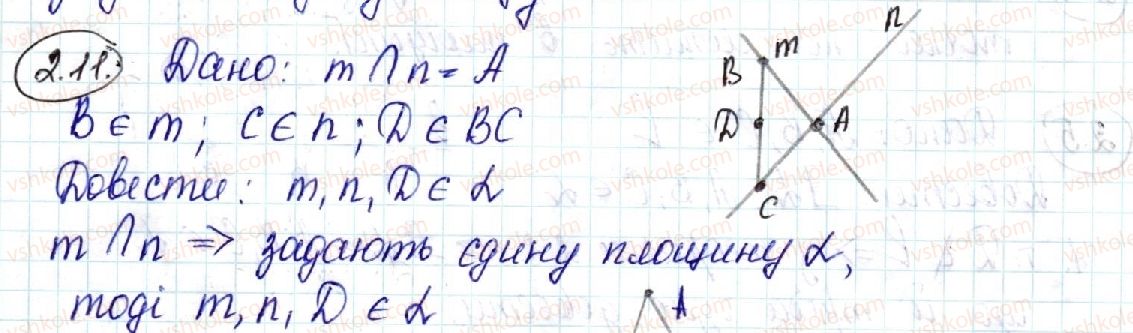 2.11. Дано: m ∩ n = A
B ∈ m; C ∈ n; D ∈ BC
Довести: m, n, D ∈ α
m ∩ n => задають єдину площину α,
тоді m, n, D ∈ α
m
n
B
D
A
C
A